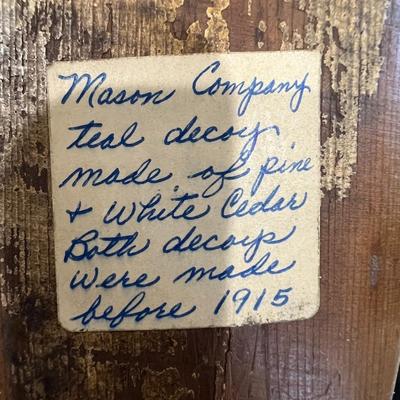 Mason Company
teal decoy
made of pine
+ White Cedar
Both decoys
were made
before 1915